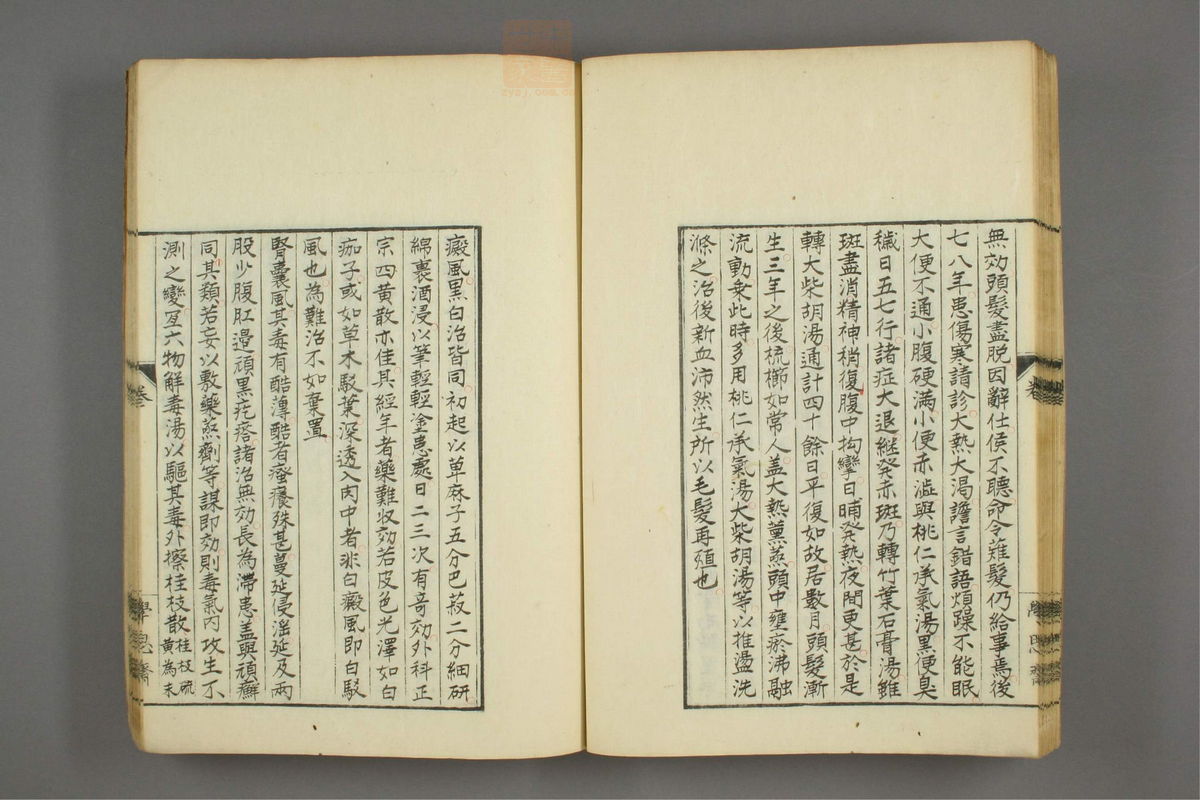 無効頭髮盡脱因辭仕侯不聽命令薙髮仍給事焉後
七八年患傷寒請診大熱大渴譫言錯語煩躁不能眠
大便不通小腹硬滿小便赤澁與桃仁承氣湯黑便臭
穢日五七行諸症大退継發赤斑乃轉竹葉石膏湯雖
斑盡消精神稍復腹中拘攣日晡發熱夜間更甚於是
轉大柴胡湯通計四十餘日平復如故居數月頭髮漸
生三年之後梳櫛如常人盖大熱薰蒸頭中壅瘀沸融
流動乗此時多用桃仁承氣湯大柴胡湯等以推盪洗
滌之治後新血沛然生所以毛髮再殖也
癜風黑白治皆同初起以草麻子五分巴菽二分細研
綿裹酒浸以筆輕輕塗患處日二三次有竒効外科正
宗四黄散亦佳其經年者藥難收効若皮色光澤如白
茄子或如草木駁葉深透入肉中者非白癜風即白駁
風也為難治不如棄置
腎囊風其毒有酷薄酷者瘙癢殊甚蔓延侵淫延及兩
股少腹肛邉頑黑疙瘩諸治無効長為滯患盖與頑癬
同其類若妄以敷藥蒸劑等謀即効則毒氣内攻生不
測之變宜六物解毒湯以驅其毒外擦桂枝散桂枝硫
黄為末
卷
卷三
學思齋